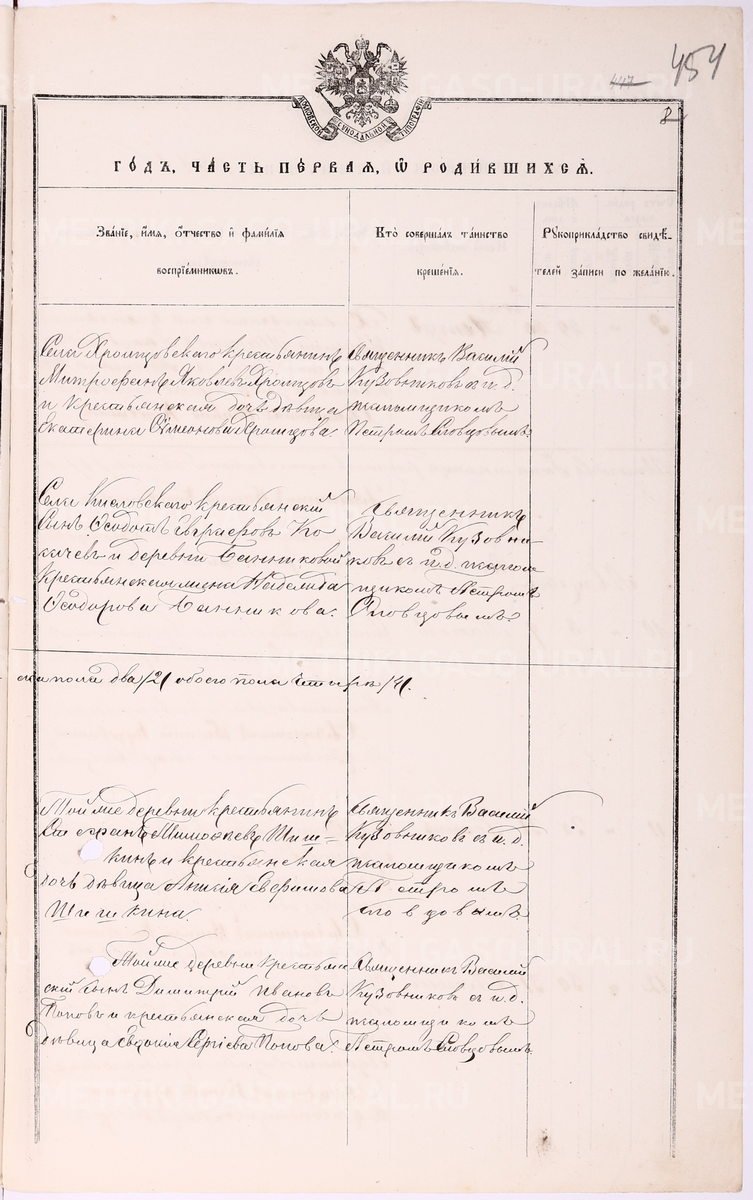 454
447
МОСКОВСКОЙ СѴНОДАЛЬНОЙ ТИПОГРАФІИ
2
ГОДЪ, ЧАСТЬ ПЕРВАЯ, Ѡ РОДИВШИХСЯ.
Званіе, имя, отчество и фамилія воспріемниковъ.
Кто совершалъ таинство крещенія.
Рукоприкладство свидѣтелей записи по желанію.
Села Хромцовскаго крестьянинъ
Митрофанъ Яковлевъ Хромцовъ
и крестьянская дочь дѣвица
Екатерина Симеонова Хромцова.
Священникъ Василій
Кузовниковъ съ и. д.
псаломщикомъ
Петромъ Словцовымъ.
Села Кисловскаго крестьянскій
сынъ Ѳеодотъ Ко
и деревни Банниковой
крестьянская жена
Ѳеодорова Банникова.
Священникъ
Василій Кузовни
ковъ съ и. д. псалом
щикомъ Петромъ
Словцовымъ.
ска пола два /2/ обоего пола четыре /4/.
Той же деревни крестьянинъ
Стефанъ Тимофеевъ Шиш-
кинъ и крестьянская
дочь дѣвица Евфимова
Шишкина.
Священникъ Василій
Кузовниковъ съ и. д.
псаломщикомъ
Петромъ
Словцовымъ
Той же деревни крестьян
скій сынъ Димитрій Ивановъ
Поповъ и крестьянская дочь
дѣвица Евдокія Сергіева Попова.
Священникъ Василій
Кузовниковъ съ и. д.
псаломщикомъ
Петромъ Словцовымъ